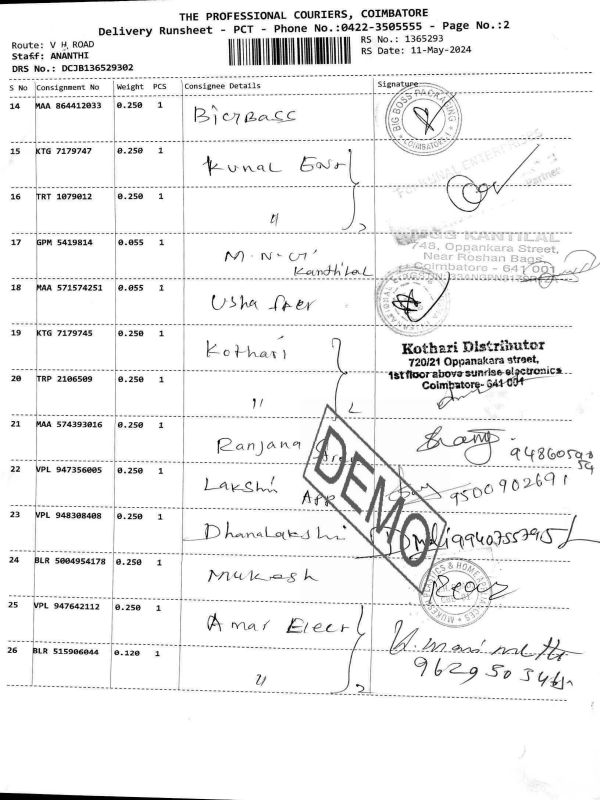 THE PROFESSIONAL COURIERS, COIMBATORE
Delivery Runsheet - PCT - Phone No.:0422-3505555 - Page No.:2
Route: V H ROAD
Staff: ANANTHI
DRS No.: DCJB136529302
RS No.: 1365293
RS Date: 11-May-2024
S No Consignment No Weight PCS Consignee Details Signature
14 MAA 864412033 0.250 1
BIG BOSS PACKAGING
COIMBATORE
15 KTG 7179747 0.250 1 Kunal
ENTERPRISES
Partner
16 TRT 1079012 0.250 1 〃 2
17 GPM 5419814 0.055 1 Kanthilal
KANTILAL
748, Oppankara Street,
Near Roshan Bags,
Coimbatore - 641 001
18 MAA 571574251 0.055 1 Usha
19 KTG 7179745 0.250 1 Kothari
Kothari Distributor
720/21 Oppanakara street,
1st floor above sunrise electronics
Coimbatore- 641 001
20 TRP 2106509 0.250 1 〃 2
21 MAA 574393016 0.250 1 Ranjana
22 VPL 947356005 0.250 1 Lakshmi App 9500902691
23 VPL 948308408 0.250 1 Dhanalakshmi
24 BLR 5004954178 0.250 1 Mukesh
25 VPL 947642112 0.250 1 Amar Elecr
26 BLR 515906044 0.120 1 〃 2
DEMO